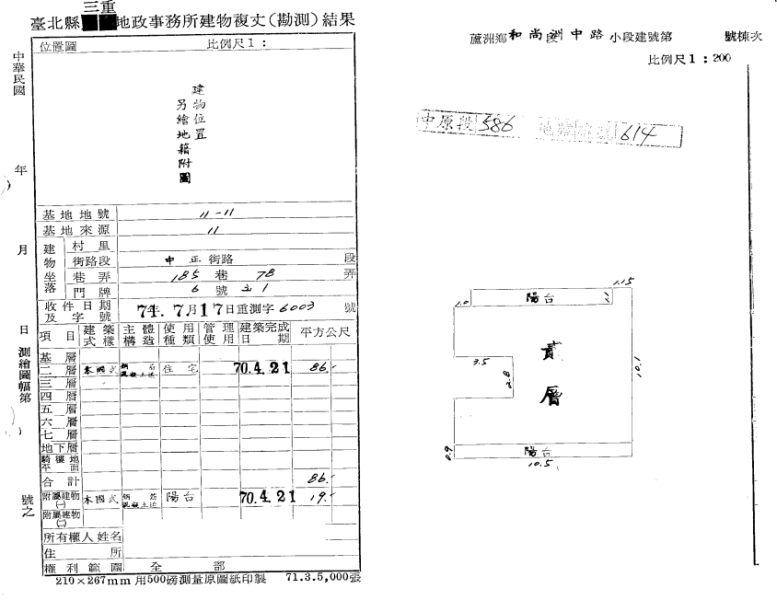 三重
臺北縣 地政事務所建物複丈(勘測)結果
位置圖 比例尺1:
中華民國 年 月 日 測繪圖幅第 號之
建物位置
另繪地籍附圖
基地地號 11-11
基地來源 11
建物坐落
村里
街路段 中正街路 段
巷弄 185巷 78 弄
門牌 6號之1
收件日期及字號 74年.7月17日重測字6003 號
項目 建築式樣 主體構造 使用種類 管理使用 建築完成日期 平方公尺
基層
二層 本國式 鋼筋混凝土造 住宅 70.4.21 86.-
三層
四層
五層
六層
七層
地下層
騎樓地平面
合計 86.-
附屬建物(一) 本國式 鋼筋混凝土造 陽台 70.4.21 19.-
附屬建物(二)
所有權人姓名
住所
權利範圍 全部
210×267mm 用500磅測量原圖紙印製 71.3.5,000張
蘆洲鄉和尚洲中路 小段建號第 號棟次
比例尺1:200
中原段 586 614
1.15
1.0 陽台
3.5
2.8
貳層
10.1
0.9 陽台
10.5